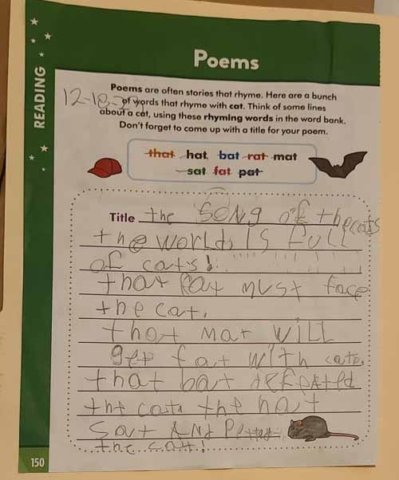 READING
Poems
Poems are often stories that rhyme. Here are a bunch
of words that rhyme with cat. Think of some lines
about a cat, using these rhyming words in the word bank.
Don't forget to come up with a title for your poem.
12-18-
that hat bat rat mat
sat fat pat
Title the SONG of the cats
the world is full
of cats!
that rat must face
the cat.
that mat will
get fat with cats
that bat defeated
the cat the hat
sat And
the cat!
150